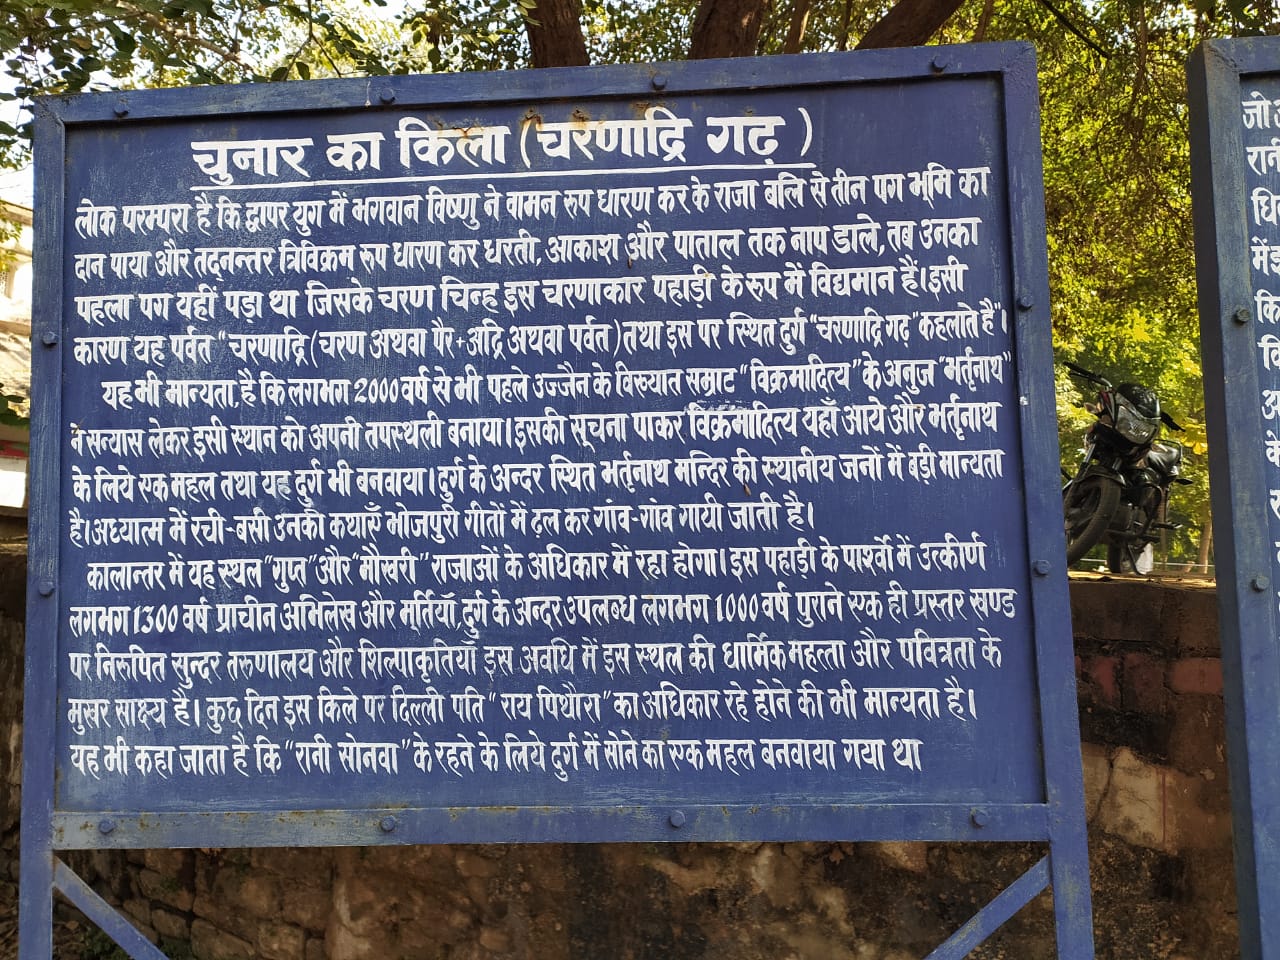 चुनार का किला (चरणाद्रि गढ़)
लोक परम्परा है कि द्वापर युग में भगवान विष्णु ने वामन रूप धारण कर के राजा बलि से तीन पग भूमि का
दान पाया और तदनन्तर त्रिविक्रम रूप धारण कर धरती, आकाश और पाताल तक नाप डाले, तब उनका
पहला पग यहीं पड़ा था जिसके चरण चिन्ह इस चरणाकार पहाड़ी के रूप में विद्यमान हैं। इसी
कारण यह पर्वत "चरणाद्रि (चरण अथवा पैर + अद्रि अथवा पर्वत) तथा इस पर स्थित दुर्ग "चरणाद्रि गढ़" कहलाते हैं"।
यह भी मान्यता, है कि लगभग 2000 वर्ष से भी पहले उज्जैन के विख्यात सम्राट "विक्रमादित्य" के अनुज "भर्तृनाथ"
ने सन्यास लेकर इसी स्थान को अपनी तपस्थली बनाया। इसकी सूचना पाकर विक्रमादित्य यहाँ आये और भर्तृनाथ
के लिये एक महल तथा यह दुर्ग भी बनवाया। दुर्ग के अन्दर स्थित भर्तृनाथ मन्दिर की स्थानीय जनों में बड़ी मान्यता
है। अध्यात्म में रची-बसी उनकी कथाएँ भोजपुरी गीतों में ढ़ल कर गांव-गांव गायी जाती है।
कालान्तर में यह स्थल "गुप्त" और "मौखरी" राजाओं के अधिकार में रहा होगा। इस पहाड़ी के पार्श्वो में उत्कीर्ण
लगभग 1300 वर्ष प्राचीन अभिलेख और मूर्तियाँ, दुर्ग के अन्दर उपलब्ध लगभग 1000 वर्ष पुराने एक ही प्रस्तर खण्ड
पर निरूपित सुन्दर तरुणालय और शिल्पाकृतियाँ इस अवधि में इस स्थल की धार्मिक महत्ता और पवित्रता के
मुखर साक्ष्य है। कुछ दिन इस किले पर दिल्ली पति "राय पिथौरा" का अधिकार रहे होने की भी मान्यता है।
यह भी कहा जाता है कि "रानी सोनवा" के रहने के लिये दुर्ग में सोने का एक महल बनवाया गया था
जो